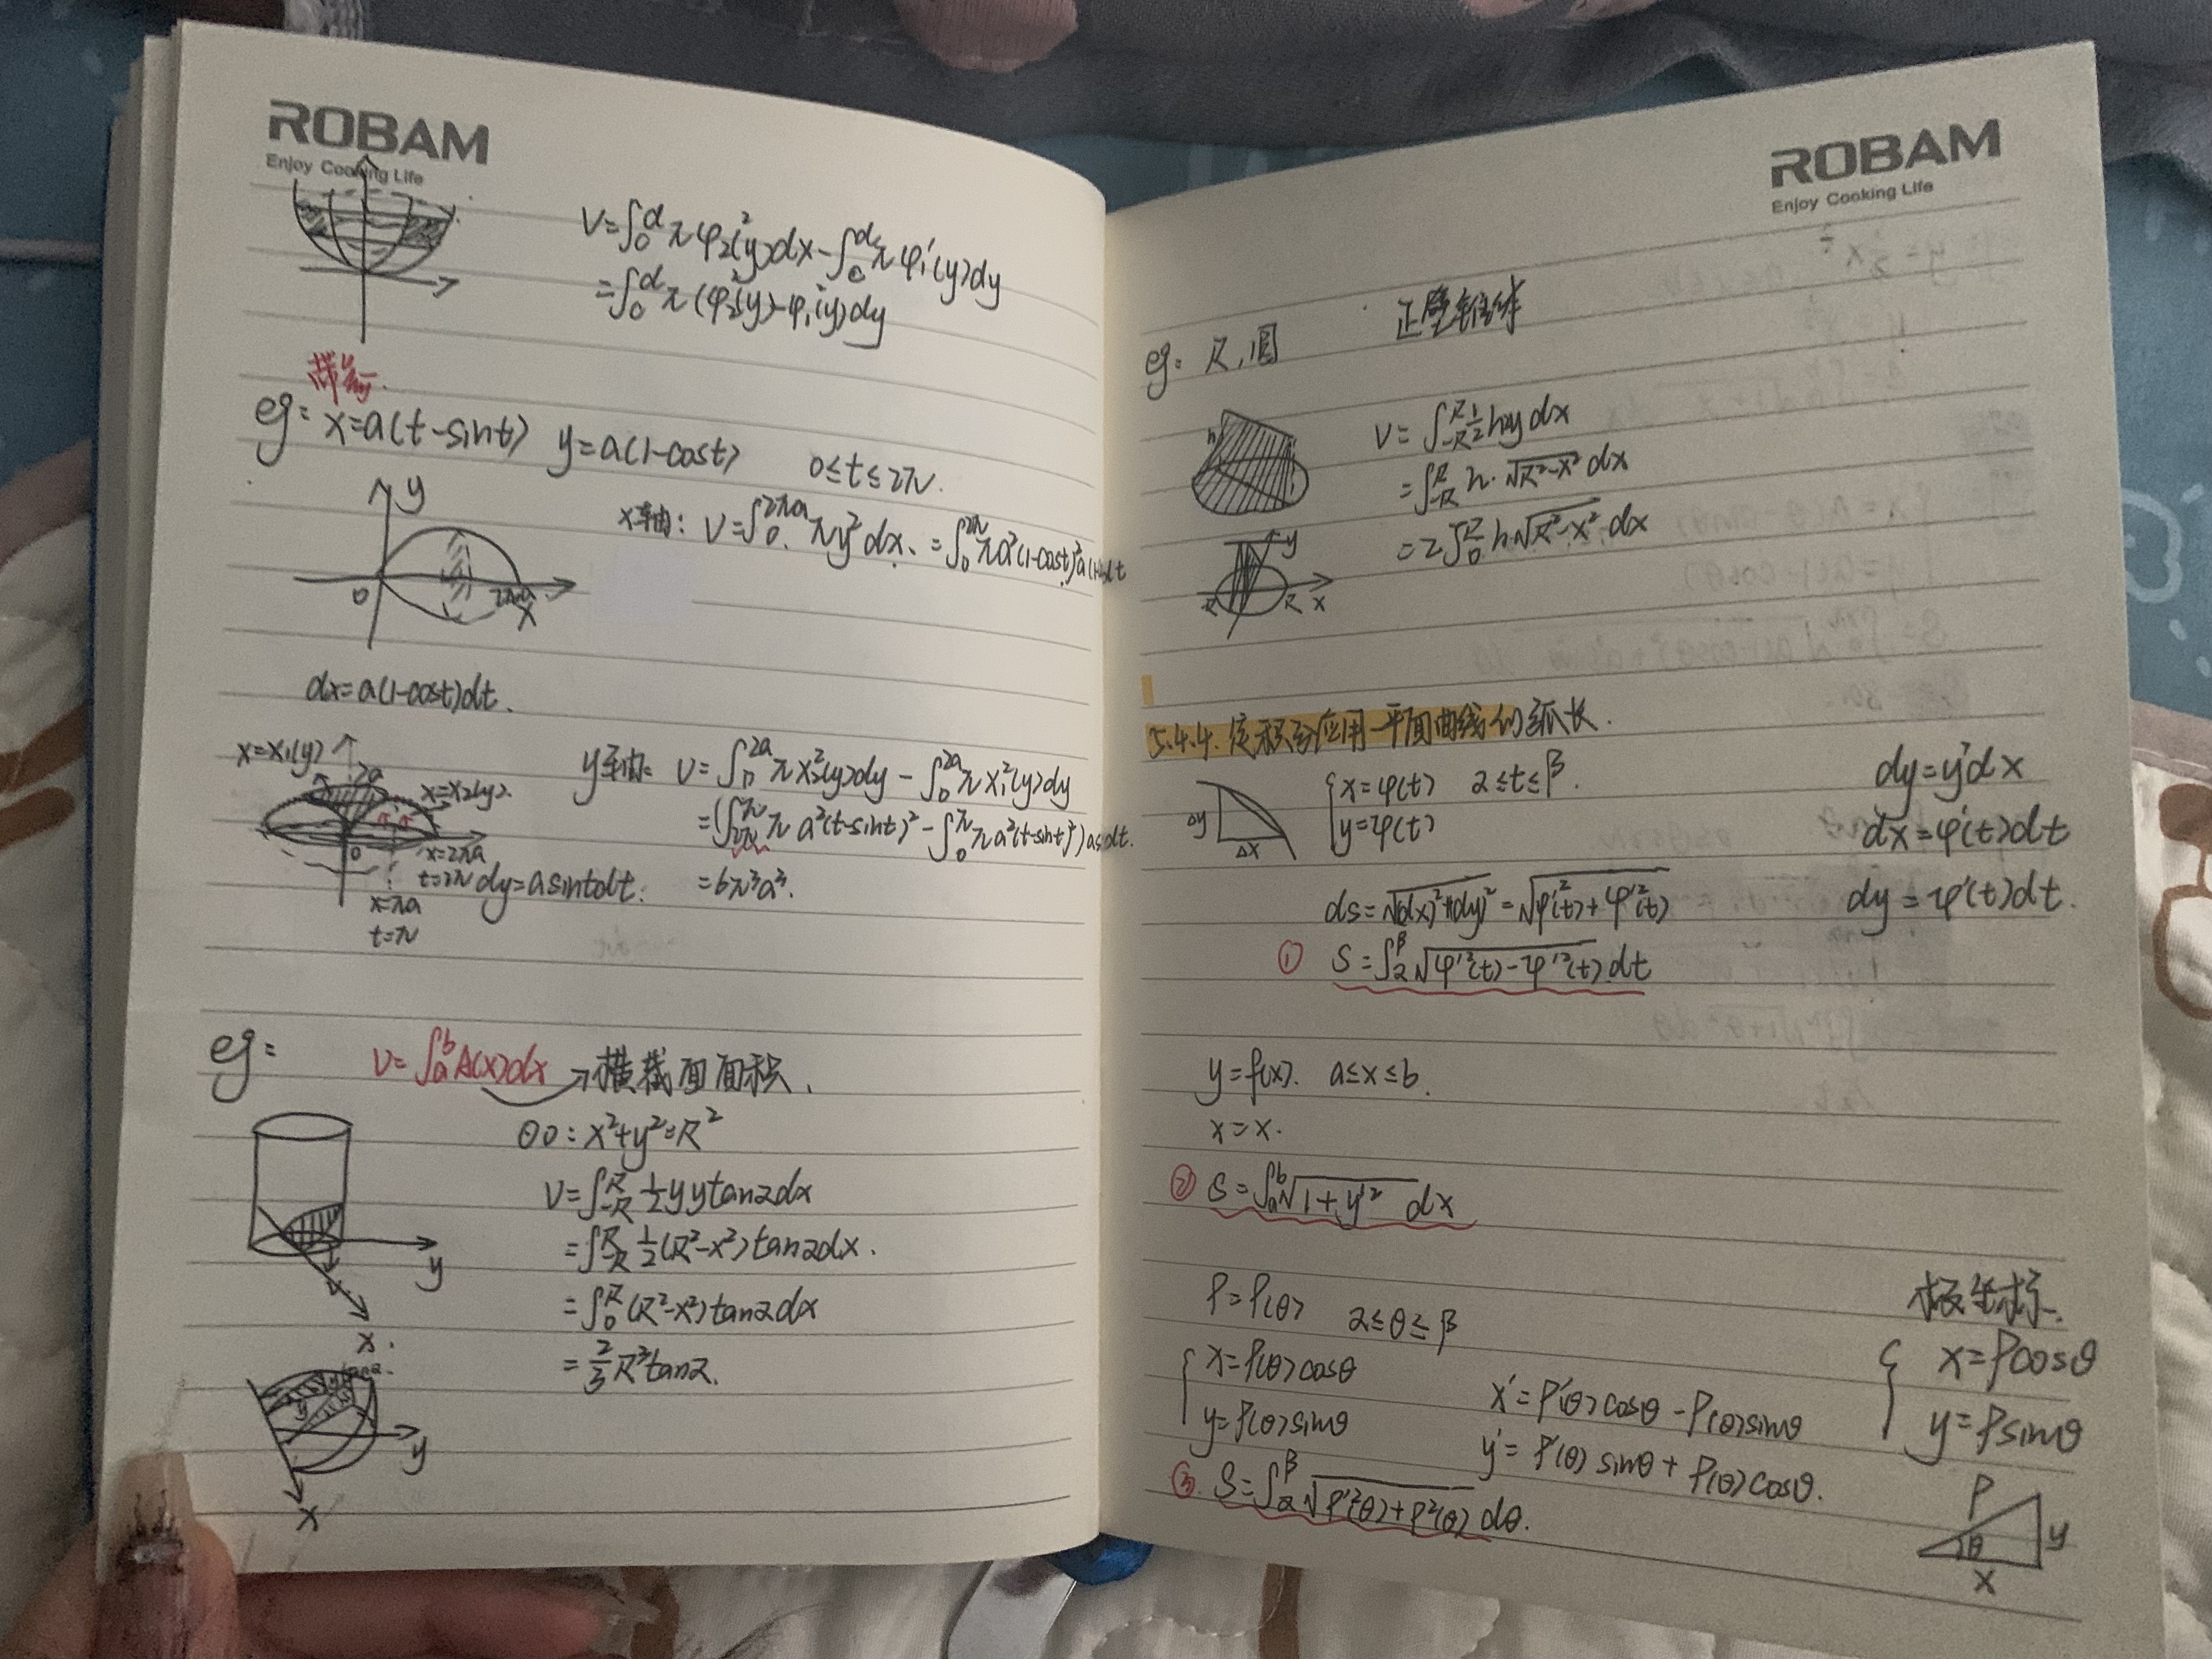 ROBAM
Enjoy Cooking Life
V=∫₀ᵈπφ₂²(y)dx-∫₀ᵈπφ₁²(y)dy
=∫₀ᵈπ(φ₂²(y)-φ₁²(y))dy
eg: x=a(t-sint) y=a(1-cost) 0≤t≤2π.
y
0
2πa
x
x轴: V=∫₀^{2πa}πy²dx.=∫₀^{2π}πa²(1-cost)²a(1-cost)dt
dx=a(1-cost)dt.
x=x₁(y)
2a
x=x₂(y).
0
x=2πa
t=2π
x=πa
t=π
y轴: V=∫₀^{2a}πx₂²(y)dy-∫₀^{2a}πx₁²(y)dy
=(∫_{2π}^{π}πa²(t-sint)²-∫₀^{π}πa²(t-sint)²)asintdt.
dy=asintdt.
=6π³a³.
eg:
V=∫ₐᵇA(x)dx→横截面面积.
⊙O:x²+y²=R²
V=∫_{-R}^{R}½yytanαdx
=∫_{-R}^{R}½(R²-x²)tanαdx.
=∫₀^{R}(R²-x²)tanαdx
=⅔R³tanα.
y
x.
y
x
ROBAM
Enjoy Cooking Life
eg: R,圆
h
V=∫_{-R}^{R}½h2ydx
=∫_{-R}^{R}h·√(R²-x²)dx
=2∫₀^{R}h√(R²-x²)dx
y
R
R
x
5.4.4.定积分应用-平面曲线的弧长.
Δy
Δx
{x=φ(t) α≤t≤β.
y=ψ(t)
dy=y'dx
dx=φ'(t)dt
dy=ψ'(t)dt.
ds=√((dx)²+(dy)²)=√(φ'²(t)+φ'²(t))
① S=∫_α^β√(φ'²(t)-ψ'²(t))dt
y=f(x). a≤x≤b.
x=x.
② S=∫ₐᵇ√(1+y'²)dx
ρ=ρ(θ) α≤θ≤β
{x=ρ(θ)cosθ
y=ρ(θ)sinθ
x'=ρ'(θ)cosθ-ρ(θ)sinθ
y'=ρ'(θ)sinθ+ρ(θ)cosθ.
③. S=∫_α^β√(ρ'²(θ)+ρ²(θ))dθ.
极坐标.
{x=ρcosθ
y=ρsinθ
ρ
θ
y
x